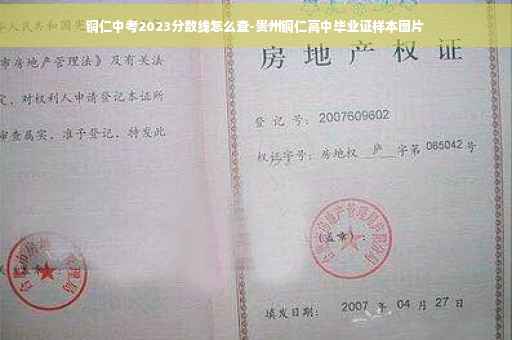 铜仁中考2023分数线怎么查-贵州铜仁高中毕业证样本图片
人民共和国宪
市房地产管理法》及有关法
定，对权利人申请登记本证所
审查属实，准予登记，特发此
房地产权证
登记号：2007609602
权证字号：房地权 庐 字第 085042 号
(盖章)：
填发日期：2007 年 04 月 27 日